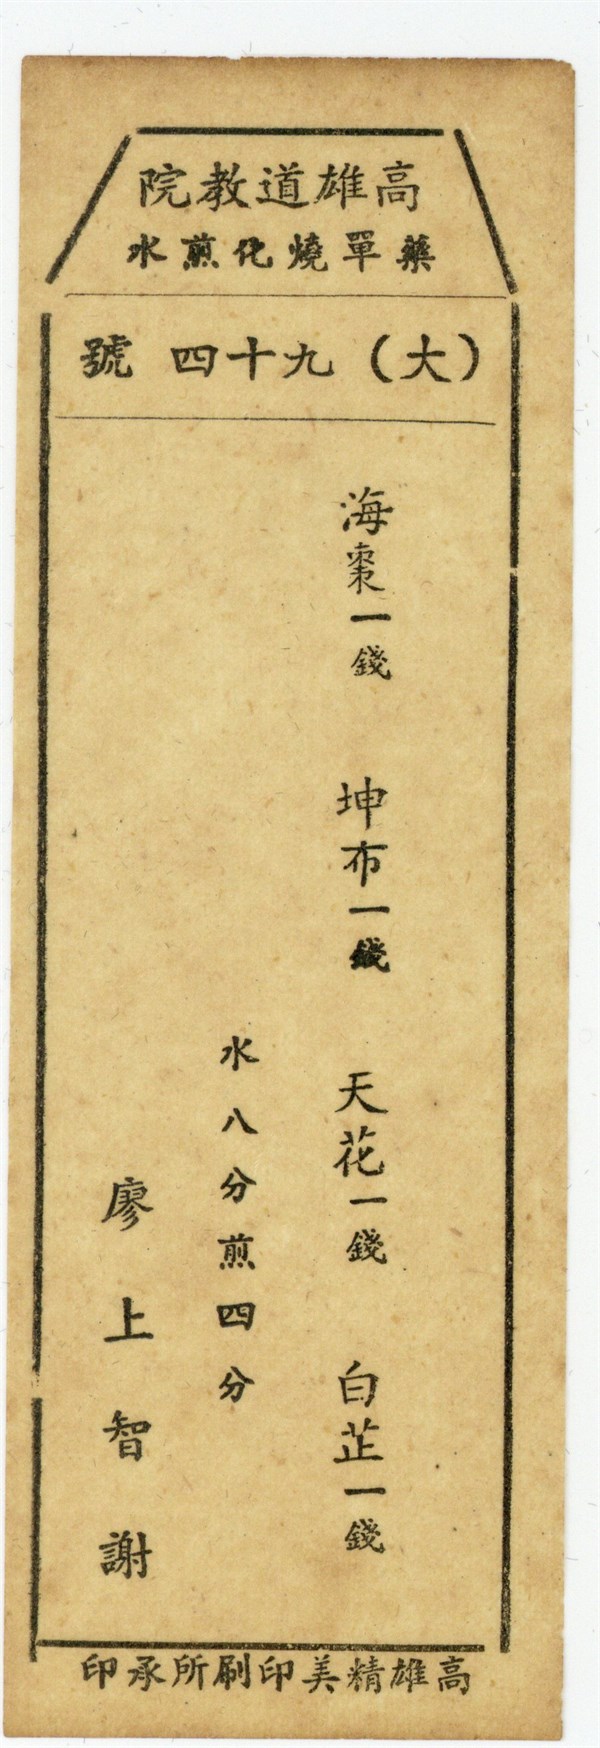 高雄道教院
藥單燒化煎水
（大）九十四號
海棗一錢　坤布一錢　天花一錢　白芷一錢
水八分煎四分
廖上智謝
高雄精美印刷所承印